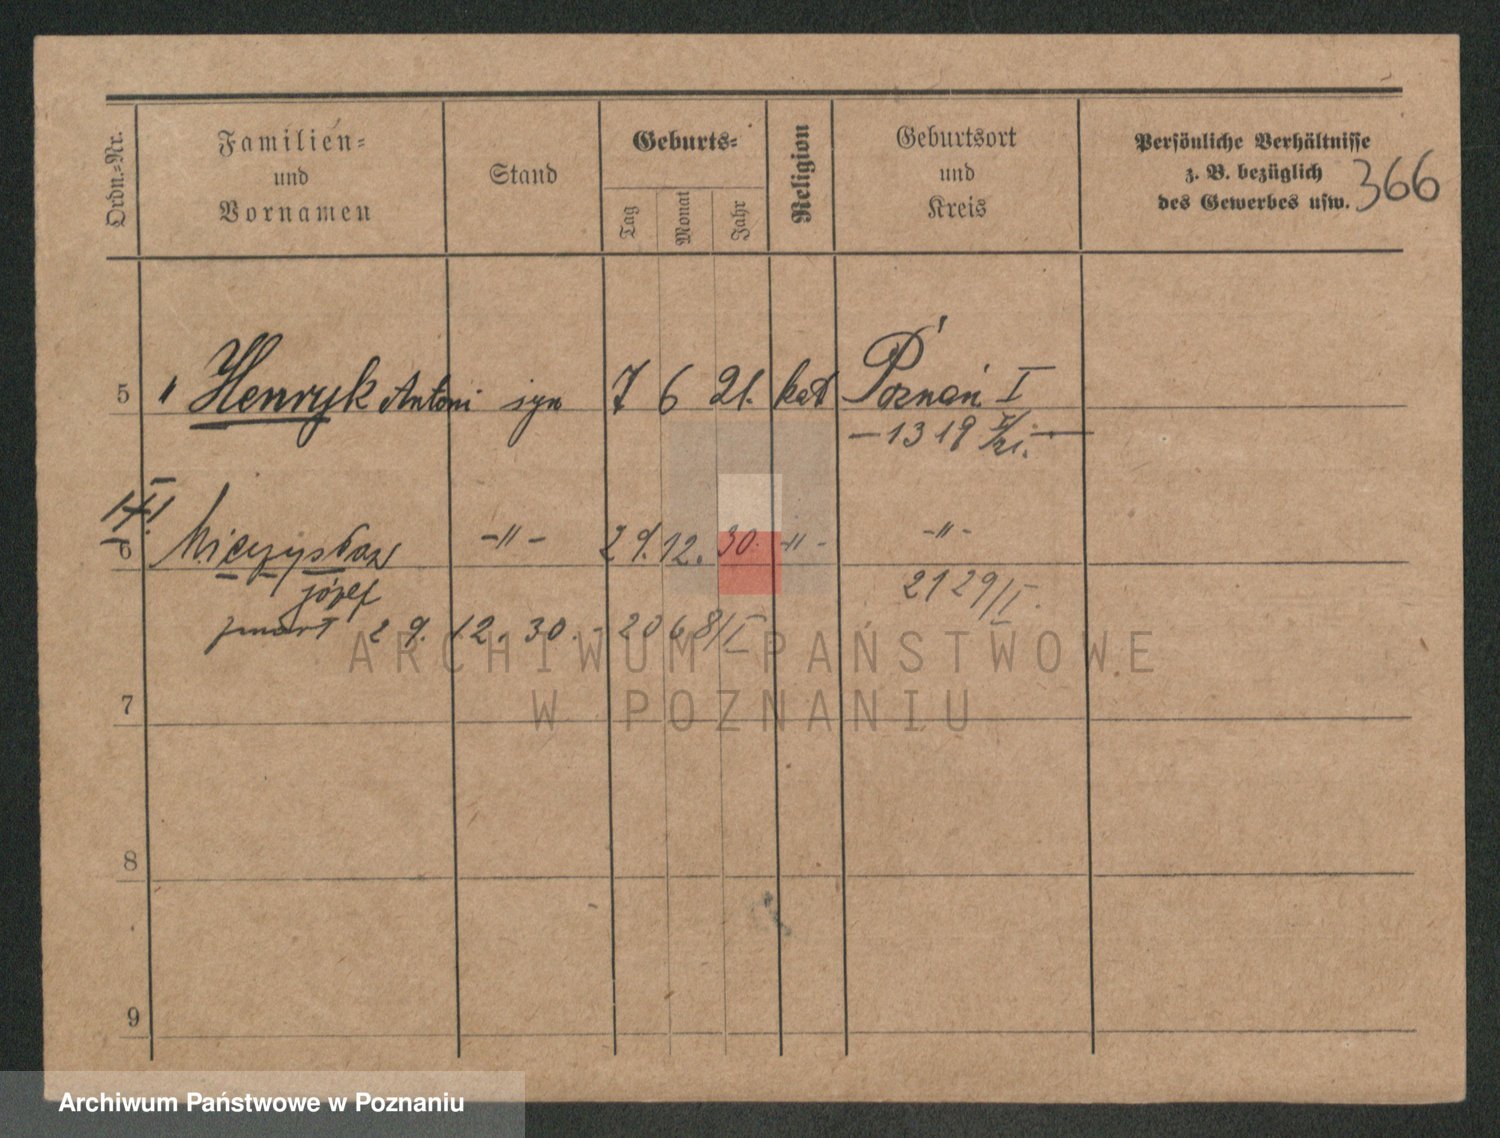 Ordn.=Nr.
Familien=
und
Vornamen
Stand
Geburts=
Tag
Monat
Jahr
Religion
Geburtsort
und
Kreis
Persönliche Verhältnisse
z. B. bezüglich
des Gewerbes usw.
366
5 " Henryk Antoni syn 7 6 21. kat Poznań I
— 1319 I/21. —
6 Mieczysław -"- 29. 12. 30. -"- -"-
Józef 2129/I.
zmarł 29. 12. 30. - 2068/I
7
8
9
ARCHIWUM PAŃSTWOWE
W POZNANIU
Archiwum Państwowe w Poznaniu